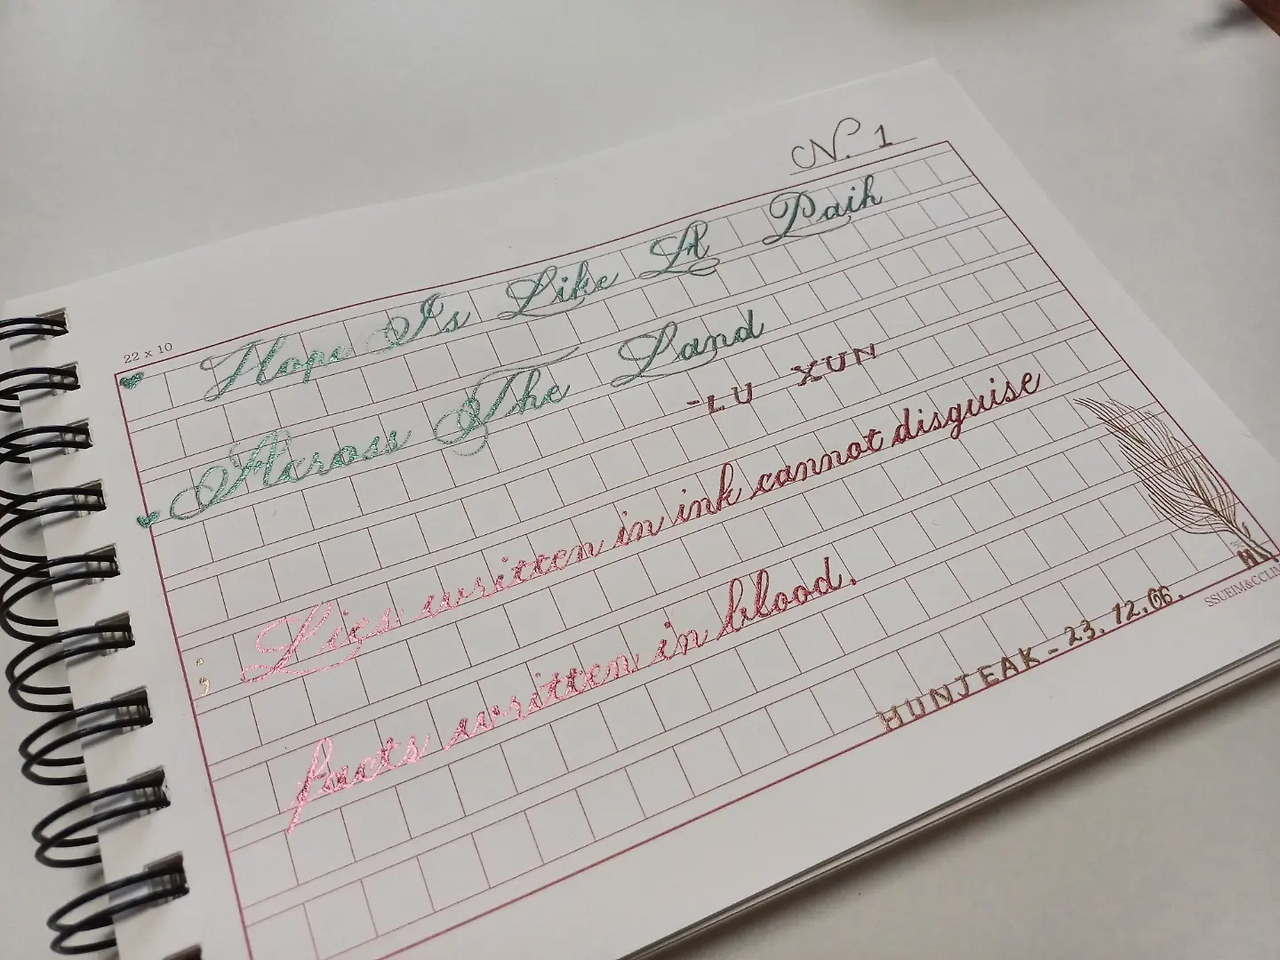 N. 1
22 x 10
Hope Is Like A Path
Across The Land
-LU XUN
; Lies written in ink cannot disguise
facts written in blood.
HUNJEAK-23.12.06.